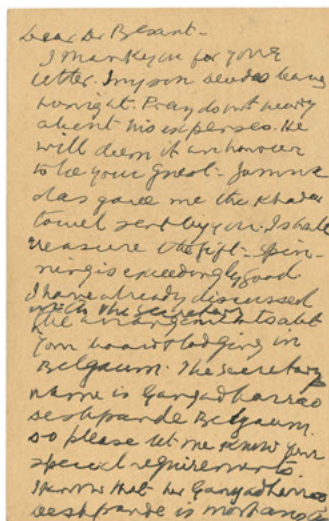 Dear Dr Besant-
I thank you for your
letter. My son Devdas leaves
tonight. Pray do not worry
about his expenses. He
will deem it an honour
to be your guest- Jamna
das gave me the Khadar
towel sent by you. I shall
treasure the gift- Spin-
ning is exceedingly good
I have already discussed
with the Secretary
the arrangements abt
your board & lodging in
Belgaum. The secretary
name is Gangadharrao
Deshpande Belgaum.
So please let me know your
special requirements.
I know that
Deshpande is